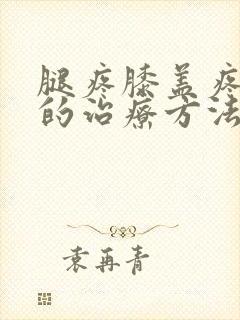 腿疼膝盖疼
的治疗方法
袁再青